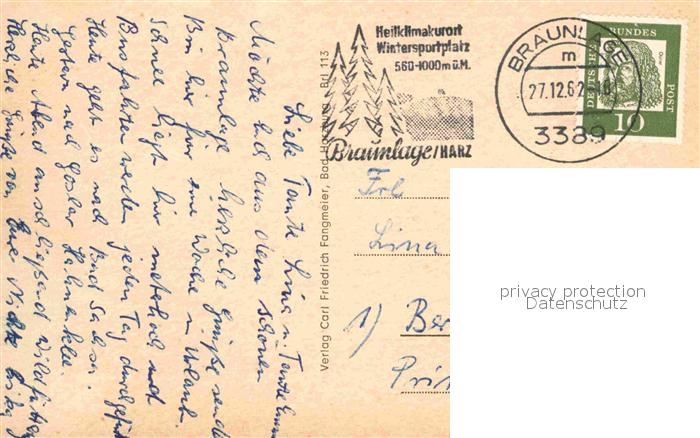 Heilklimakurort
Wintersportplatz
560-1000m ü.M.
Braunlage/HARZ
BRAUNLAGE
m
27.12.62
3389
DEUTSCHE BUNDESPOST
Dürer
10
Liebe Tante Lina u. Tante
Möchte Euch aus dem schönen
Braunlage herzliche Grüße senden
Bin hier für eine Woche in Urlaub.
Schnee liegt hier meterhoch und
Busfahrten werden jeden Tag
Heute geht es nach Bad Sachsa.
Gestern nach Goslar Hahnenklee.
Heute Abend anschließend
Herzliche Grüße von Eure Nichte
Verlag Carl Friedrich Fangmeier, Bad Harzburg, Brl 113
Frl
Lina
1) Ber
Pri
privacy protection
Datenschutz